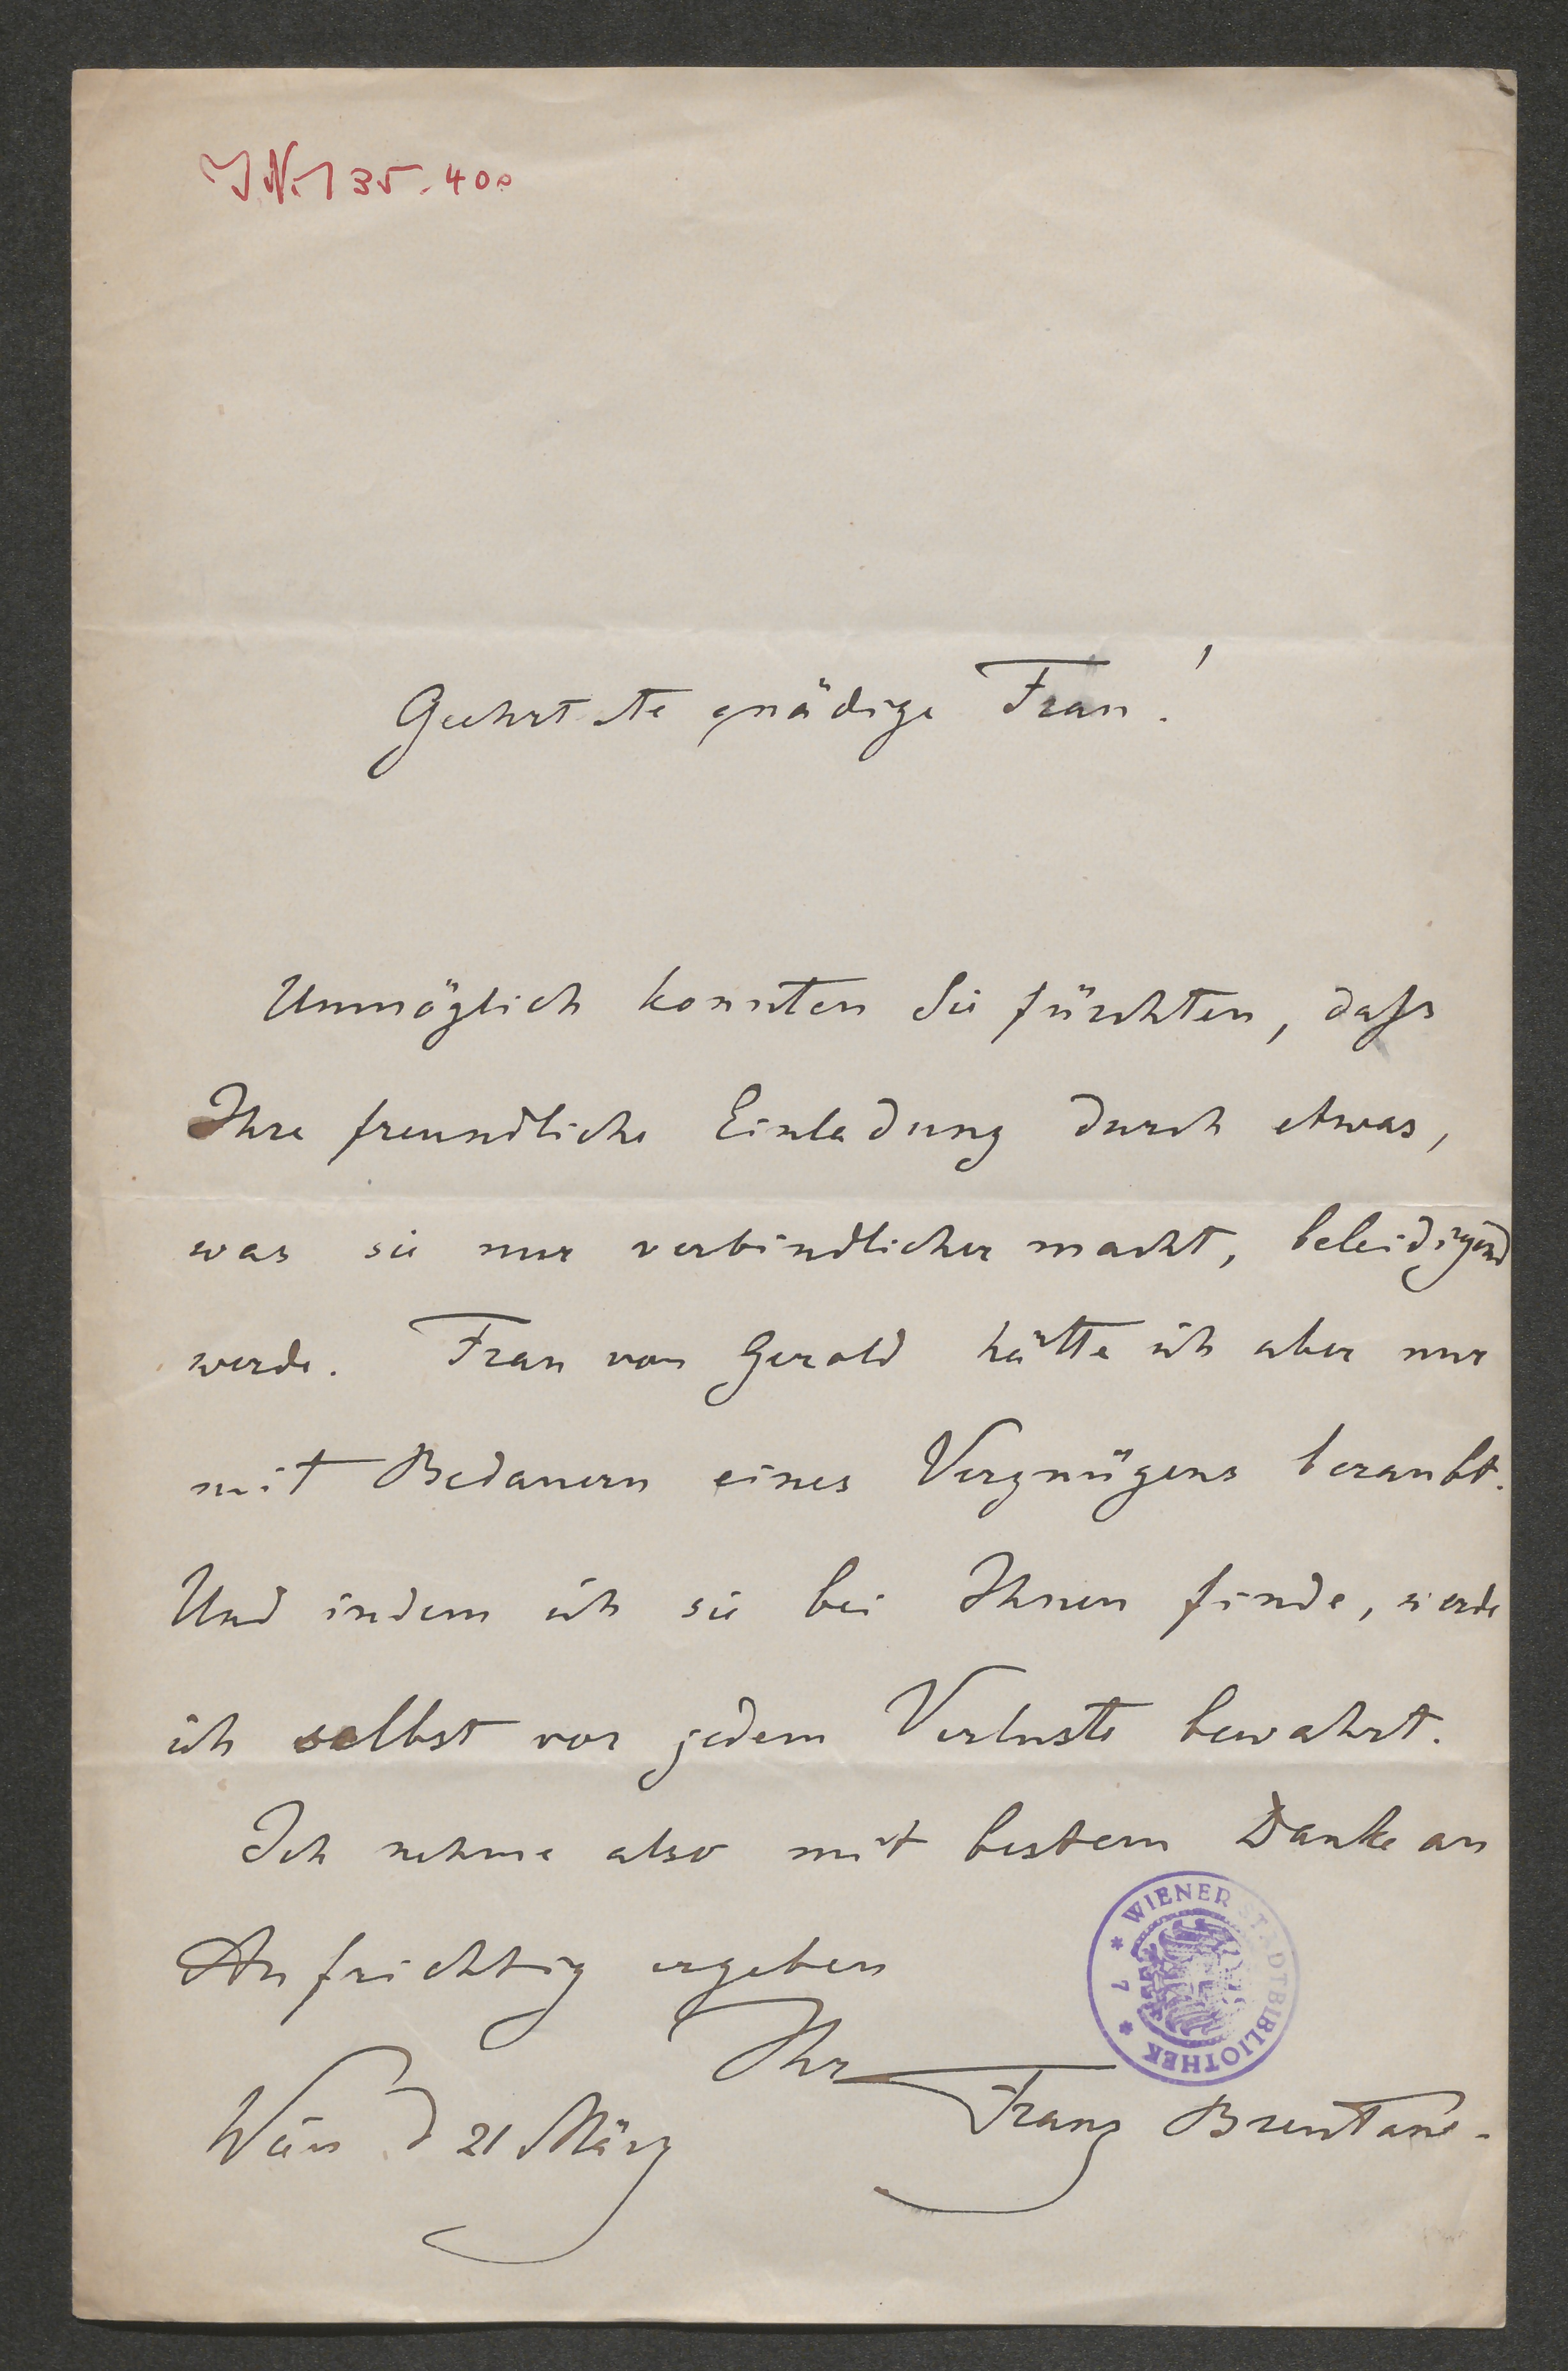 I.N. 135.400
Geehrteste gnädige Frau!
Unmöglich konnten Sie fürchten, dass
Ihre freundliche Einladung durch etwas,
was sie nur verbindlicher macht, beleidigend
werde. Frau von Gerold hätte ich aber nur
mit Bedauern eines Vergnügens beraubt.
Und indem ich sie bei Ihnen finde, werde
ich selbst vor jedem Verluste bewahrt.
Ich nehme also mit bestem Danke an
Aufrichtig ergeben
Ihr
Franz Brentano.
Wien d 21 März
* WIENER STADTBIBLIOTHEK * 7